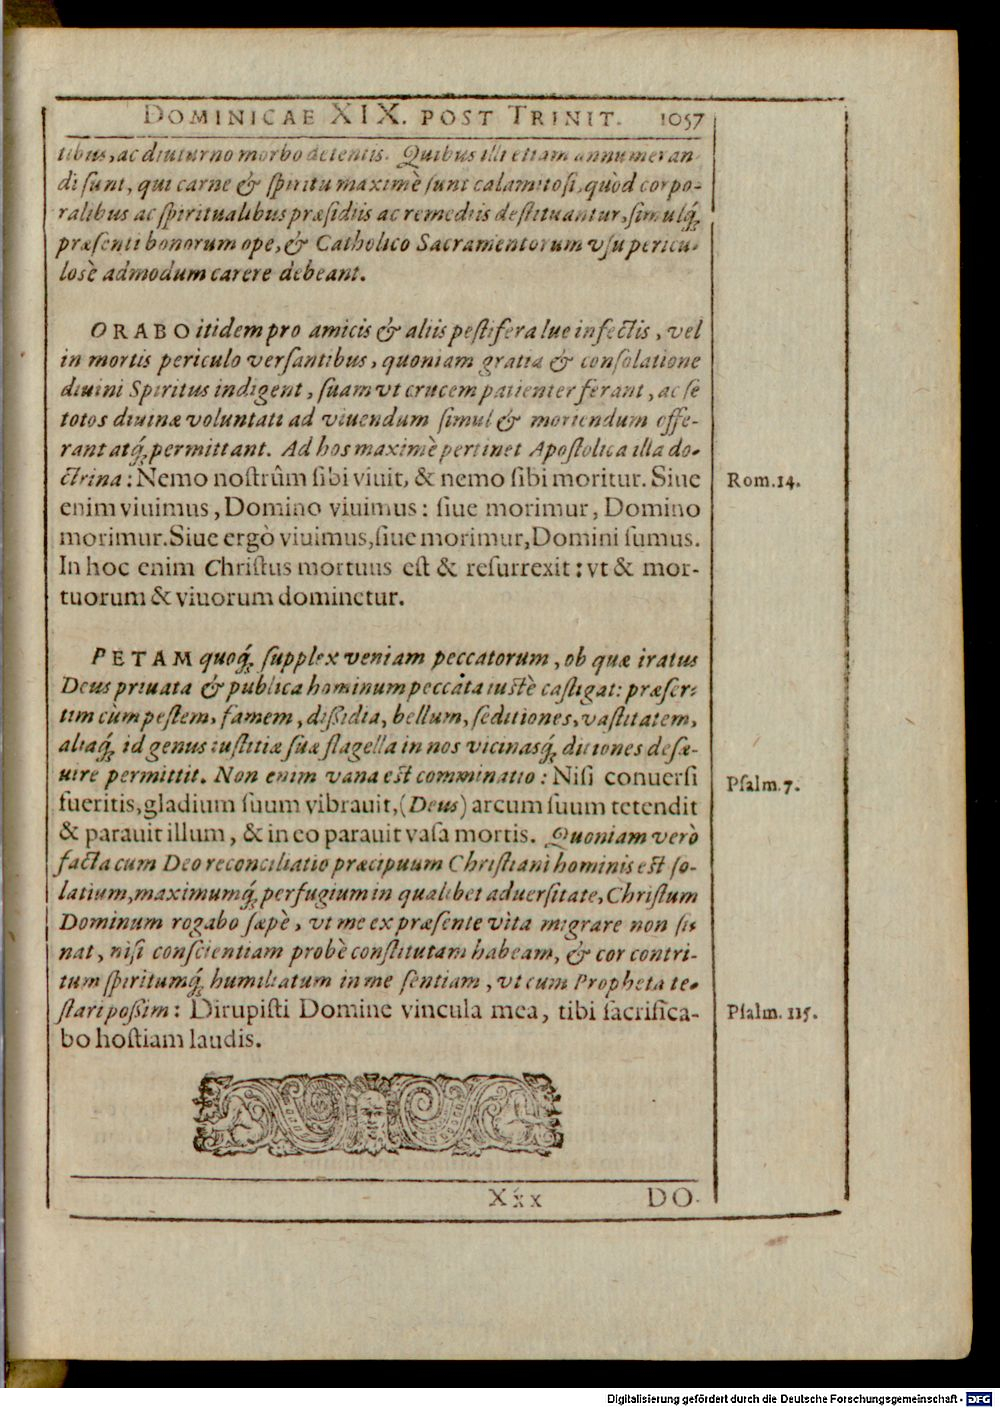 DOMINICAE XIX. POST TRINIT. 1057
tibus, ac diuturno morbo detentis. Quibus illi etiam annumeran
di sunt, qui carne & spiritu maximè sunt calamitosi, quòd corpo-
ralibus ac spiritualibus præsidiis ac remediis destituantur, simulq́;
præsenti bonorum ope, & Catholico Sacramentorum vsu pericu-
losè admodum carere debeant.
ORABO itidem pro amicis & aliis pestifera lue infectis, vel
in mortis periculo versantibus, quoniam gratia & consolatione
diuini Spiritus indigent, suam vt crucem patienter ferant, ac se
totos diuinæ voluntati ad viuendum simul & moriendum offe-
rant atq́; permittant. Ad hos maximè pertinet Apostolica illa do-
ctrina: Nemo nostrûm sibi viuit, & nemo sibi moritur. Siue
Rom. 14.
enim viuimus, Domino viuimus: siue morimur, Domino
morimur. Siue ergò viuimus, siue morimur, Domini sumus.
In hoc enim Christus mortuus est & resurrexit: vt & mor-
tuorum & viuorum dominetur.
PETAM quoq́; supplex veniam peccatorum, ob quæ iratus
Deus priuata & publica hominum peccata iustè castigat: præser-
tim cùm pestem, famem, dissidia, bellum, seditiones, vastitatem,
aliaq́; id genus iustitiæ suæ flagella in nos vicinasq́; ditiones desæ-
uire permittit. Non enim vana est comminatio: Nisi conuersi
Psalm. 7.
fueritis, gladium suum vibrauit, (Deus) arcum suum tetendit
& parauit illum, & in eo parauit vasa mortis. Quoniam verò
facta cum Deo reconciliatio præcipuum Christiani hominis est so-
latium, maximumq́; perfugium in qualibet aduersitate, Christum
Dominum rogabo sæpè, vt me ex præsente vita migrare non si-
nat, nisi conscientiam probè constitutam habeam, & cor contri-
tum spiritumq́; humiliatum in me sentiam, vt cum Propheta te-
stari possim: Dirupisti Domine vincula mea, tibi sacrifica-
Psalm. 115.
bo hostiam laudis.
Xxx DO-
Digitalisierung gefördert durch die Deutsche Forschungsgemeinschaft - DFG